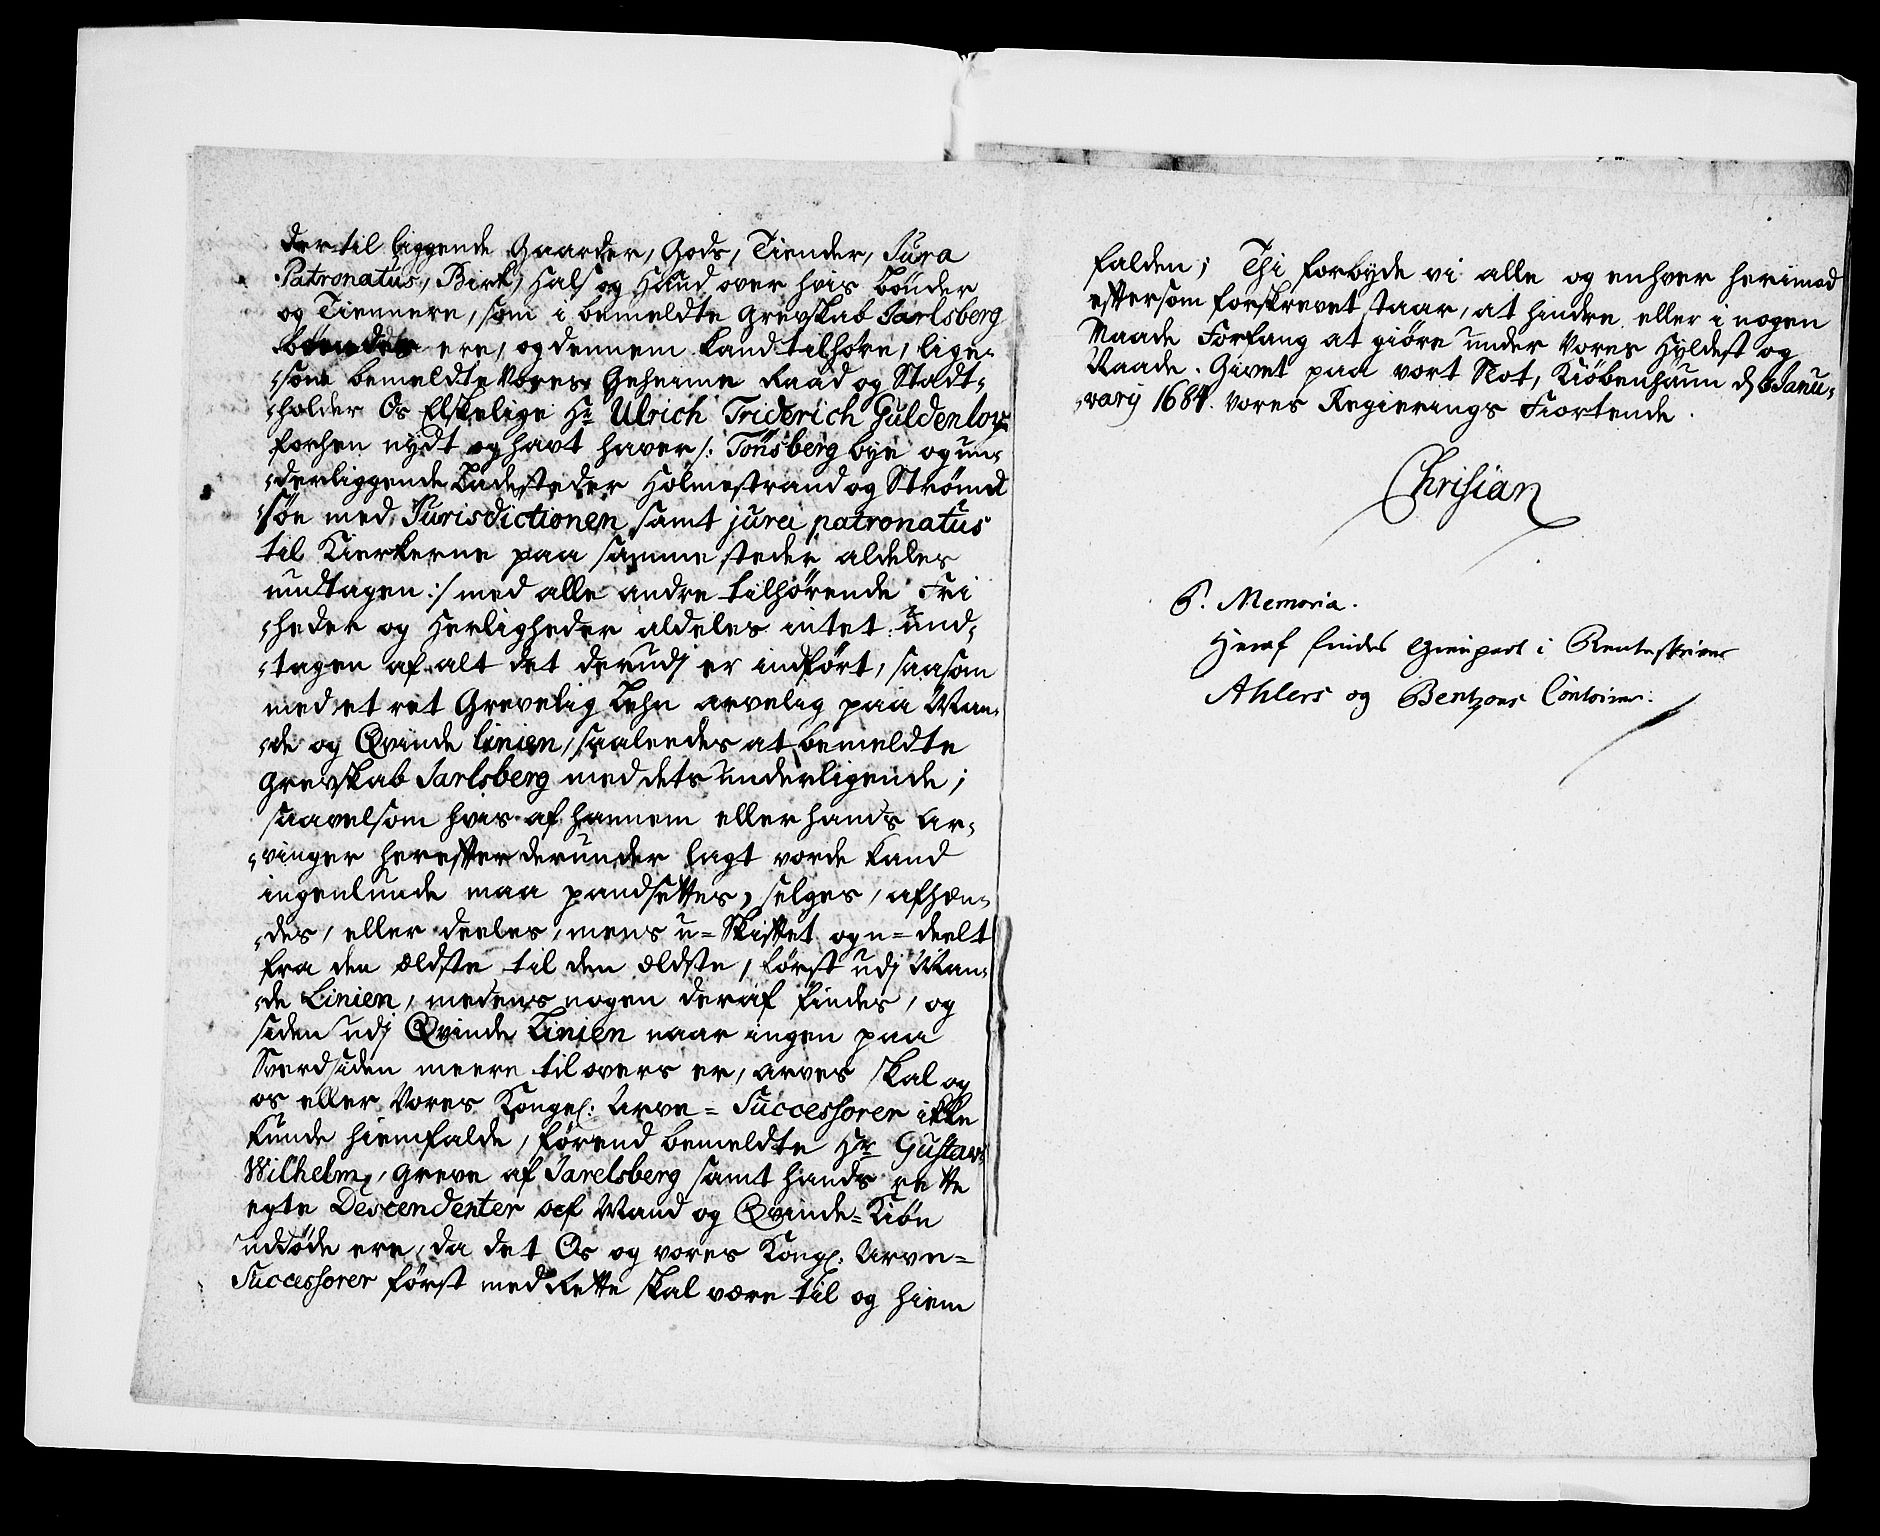 der til liggende Gaarder, Gods, Tiender, Jura
Patronatus, Birk, Hals og Haand over hvis bönder
og Tiennere, som i bemeldte Grevskab Jarlsberg
boendes ere, og dennem kand tilhöre, lige-
-som bemeldte Vores Geheime Raad og Stadt-
-holder Os Elskelige Hr Ulrich Friderich Guldenlöv
forhen nydt og havt haver /: Tönsberg bye og un-
-derliggende Ladesteder Holmestrand og Ströms
-söe med Jurisdictionen samt jura patronatus
til Kierkerne paa samme steder aldeles
undtagen :/ med alle andre tilhörende Fri
-heder og Herligheder aldeles intet und-
-tagen af alt det derudj er indfört, saasom
med et ret Grevelig Lehn arvelig paa Man-
-de og Qvinde linien, saaledes at bemeldte
Grevskab Jarlsberg med dets underligende;
saavelsom hvis af hannem eller hans Ar-
-vinger herefter derunder lagt vorde kand
ingenlunde maa pandsettes, selges, afhæn-
-des, eller deeles, mens u=Skiftet og u=deelt
fra den ældste til den ældste, först udj Man-
-de Linien, medens nogen deraf findes, og
siden udj Qvinde Linien naar ingen paa
Sverdsiden meere tilovers er, arves skal og
os eller Vores Kongel: Arve=Successorer ikke
kunde hiemfalde, förend bemeldte Hr Gustav
Wilhelm, Greve af Jarelsberg samt hands rette
egte Descendenter af Mand og Qvinde=Kiön
uddöde ere, da det Os og vores Kongl: Arve=
Successorer först med Rette skal være til og hiem
falden; Thi forbyde vi alle og enhver herimod
eftersom forskrevet staar, at hindre eller i nogen
Maade Forfang at giöre under Vores Hyldest og
Naade. Givet paa vort Slot, Kiöbenhaun d. Janu-
-varij 1684. Vores Regierings Fiortende.
Christian
P. Memoria.
Heraf findes Gienpart i Renteskriver
Ahlers og Bentzons Contoirer.